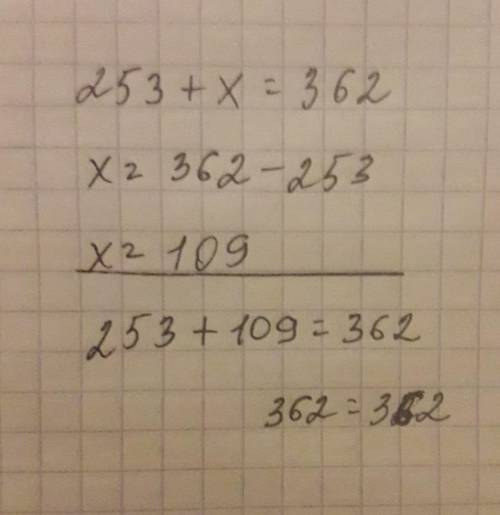 253 + x = 362
x = 362 - 253
x = 109
253 + 109 = 362
362 = 362